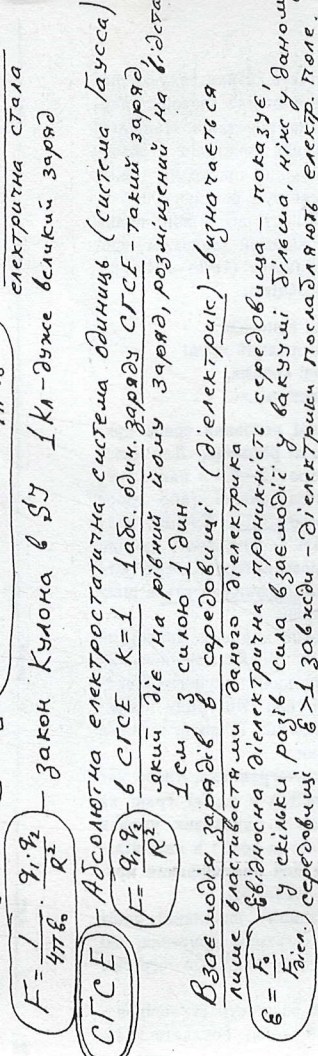 електрична стала
F = 1/4πε₀ · q₁·q₂/R² – закон Кулона в SI 1Кл – дуже великий заряд
СГСЕ – Абсолютна електростатична система одиниць (система Гаусса)
F = q₁·q₂/R² – в СГСЕ к=1 1абс. один. заряду СГСЕ – такий заряд,
який діє на рівний йому заряд, розміщений на відста
1см, з силою 1 дин
Взаємодія зарядів в середовищі (діелектрик) – визначається
лише властивостями даного діелектрика
ε = F₀/Fдіел. – відносна діелектрична проникність середовища – показує,
у скільки разів сила взаємодії у вакуумі більша, ніж у даном
середовищі ε>1 завжди – діелектрики послабляють електр. поле.